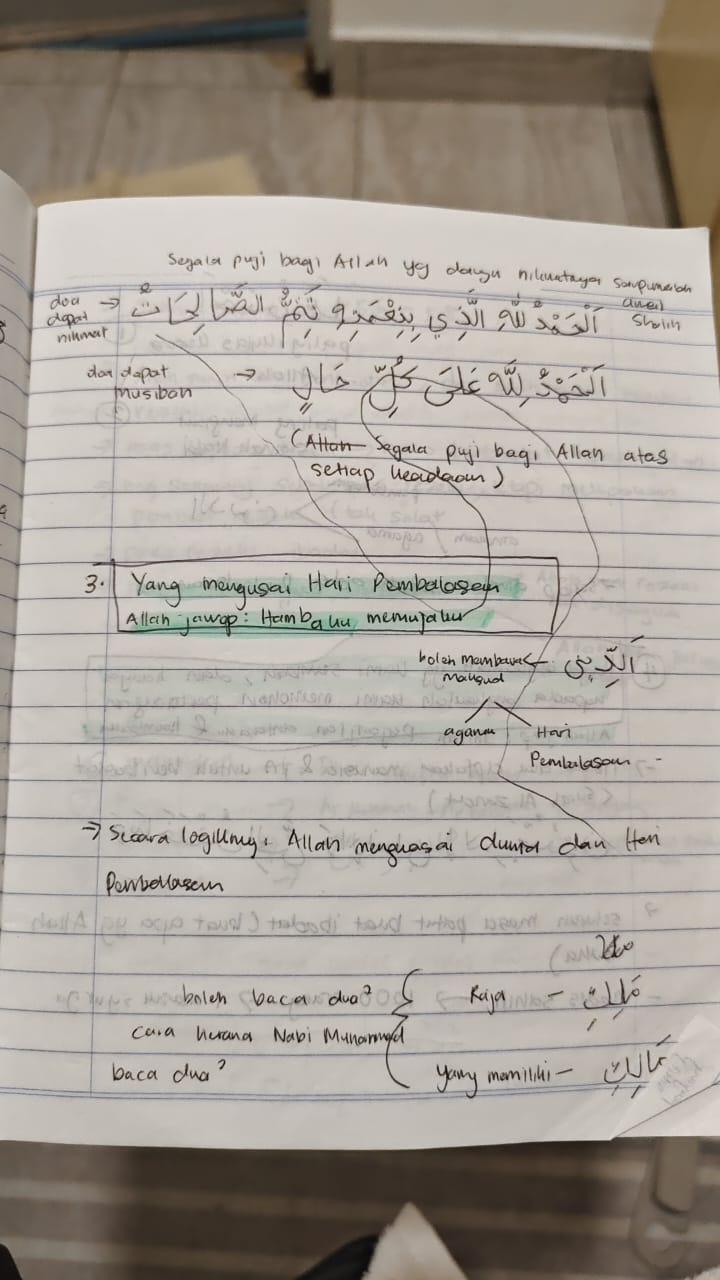 Segala puji bagi Allah yg dengan nikmatnya sempurnalah
doa → اَلْحَمْدُ لِلّٰهِ الَّذِي بِنِعْمَتِهِ تَتِمُّ الصَّالِحَاتُ
dapat
nikmat
amal
Sholih
doa dapat → اَلْحَمْدُ لِلّٰهِ عَلَى كُلِّ حَالٍ
musibah
(Allah Segala puji bagi Allah atas
setiap keadaan)
3. Yang mengusai Hari Pembalasan
Allah jawap: Hambaku memujaku
boleh membawa ← اَلدِّيْنِ
maksud
agama
Hari
Pembalasan -
→ Secara logiknya, Allah menguasai dunia dan Hari
Pembalasan
boleh baca dua² { Raja - مَلِكِ
cara kerana Nabi Muhammad
baca dua² yang memiliki - مَالِكِ